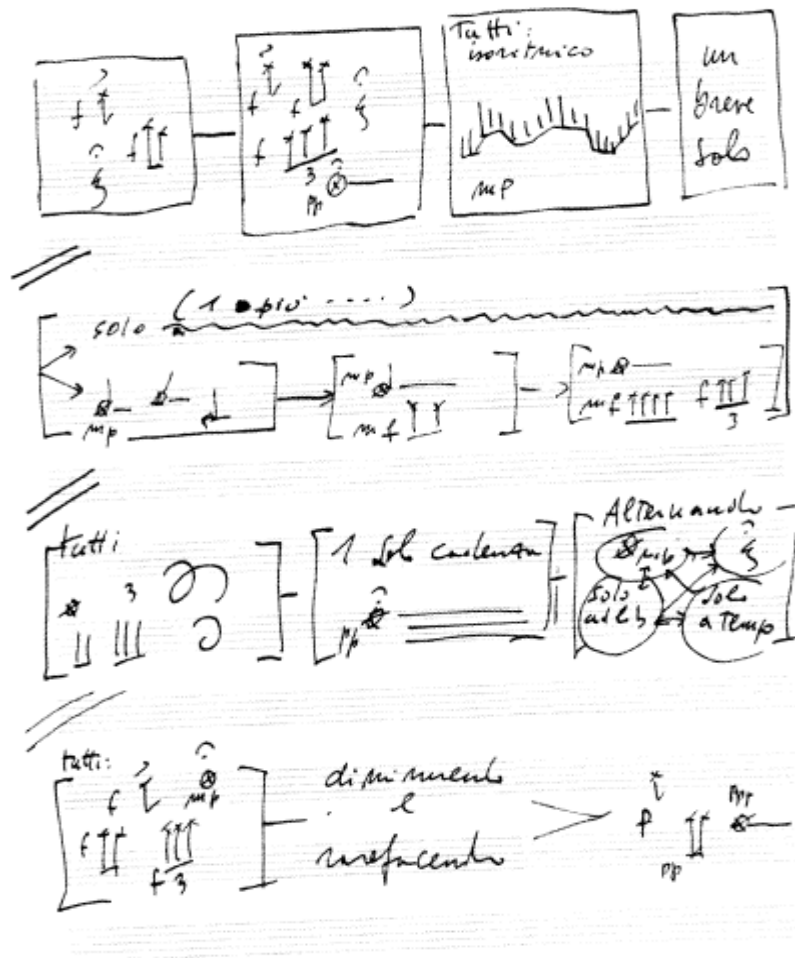 f
f
f f
f
3
pp
Tutti:
isoritmico
mp
un
breve
solo
solo (1 o più ....)
mp
mp
mf
mp
mf f
3
tutti
3
1 Solo cadenza
pp
Alternando
mp
solo
ad lib
solo
a tempo
tutti:
f mp
f
f 3
diminuendo
e
rarefacendo
p
pp
ppp